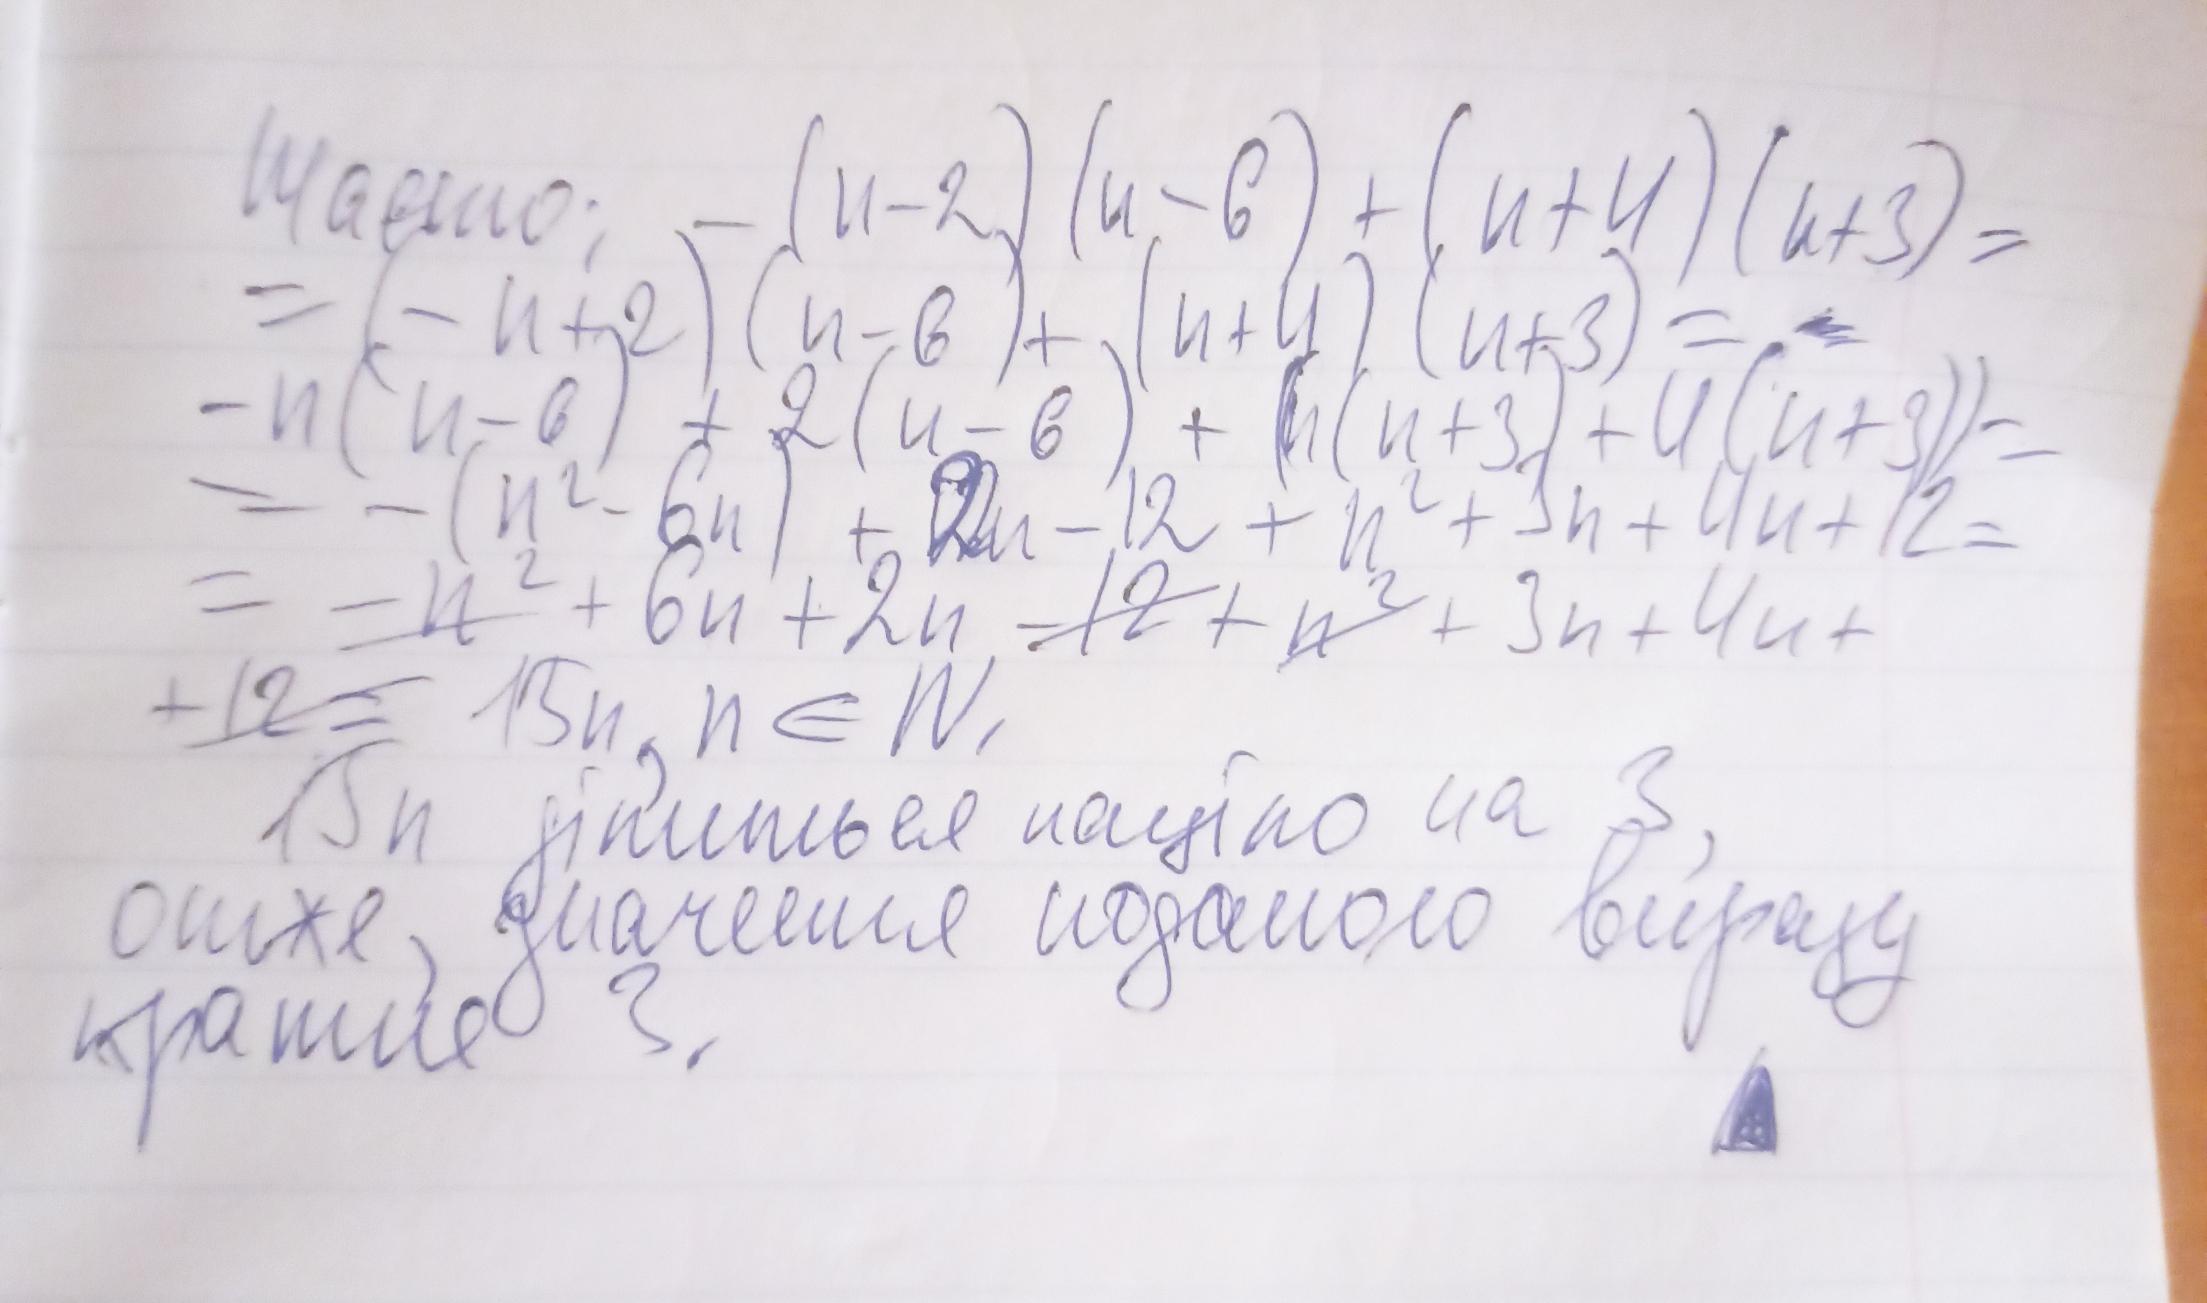 Маємо: -(n-2)(n-6)+(n+4)(n+3)=
=(-n+2)(n-6)+(n+4)(n+3)=
-n(n-6)+2(n-6)+n(n+3)+4(n+3))=
= -(n²-6n)+2n-12+n²+3n+4n+12=
= -n²+6n+2n-12+n²+3n+4n+
+12= 15n, n∈N.
15n ділиться націло на 3,
отже, значення поданого виразу
кратне 3.